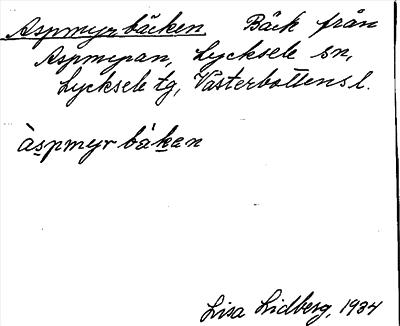 Aspmyrbäcken. Bäck från
Aspmyran, Lycksele sn,
Lycksele tg, Västerbottens l.
àspmyrbäkən
Lisa Lidberg, 1934